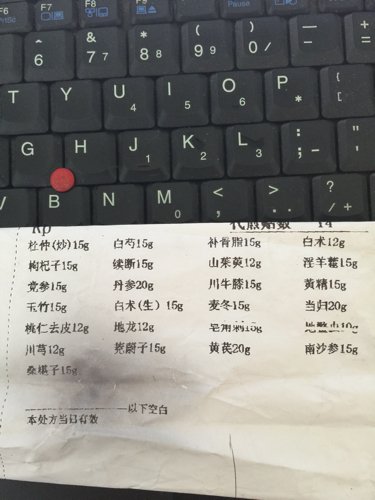 F6 F7 F8 F9 F10 Pause
PrtSc
^ & * ( ) _ +
6 7 7 8 8 9 9 0 / - =
T Y U 4 I 5 O 6 P * {
[
G H J 1 K 2 L 3 : ; - "
'
V B N M 0 < , > . . ? / +
Rp 代煎贴数 14
杜仲(炒)15g 白芍15g 补骨脂15g 白术12g
枸杞子15g 续断15g 山茱萸12g 淫羊藿15g
党参15g 丹参20g 川牛膝15g 黄精15g
玉竹15g 白术(生) 15g 麦冬15g 当归20g
桃仁去皮12g 地龙12g 皂角刺15g 地鳖虫10g
川芎12g 茺蔚子15g 黄芪20g 南沙参15g
桑椹子15g
以下空白
本处方当日有效